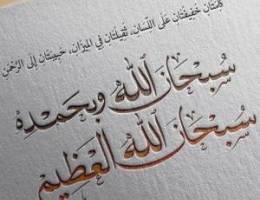 كلمتان خفيفتان على اللسان، ثقيلتان في الميزان، حبيبتان إلى الرحمن
سبحان الله وبحمده
سبحان الله العظيم